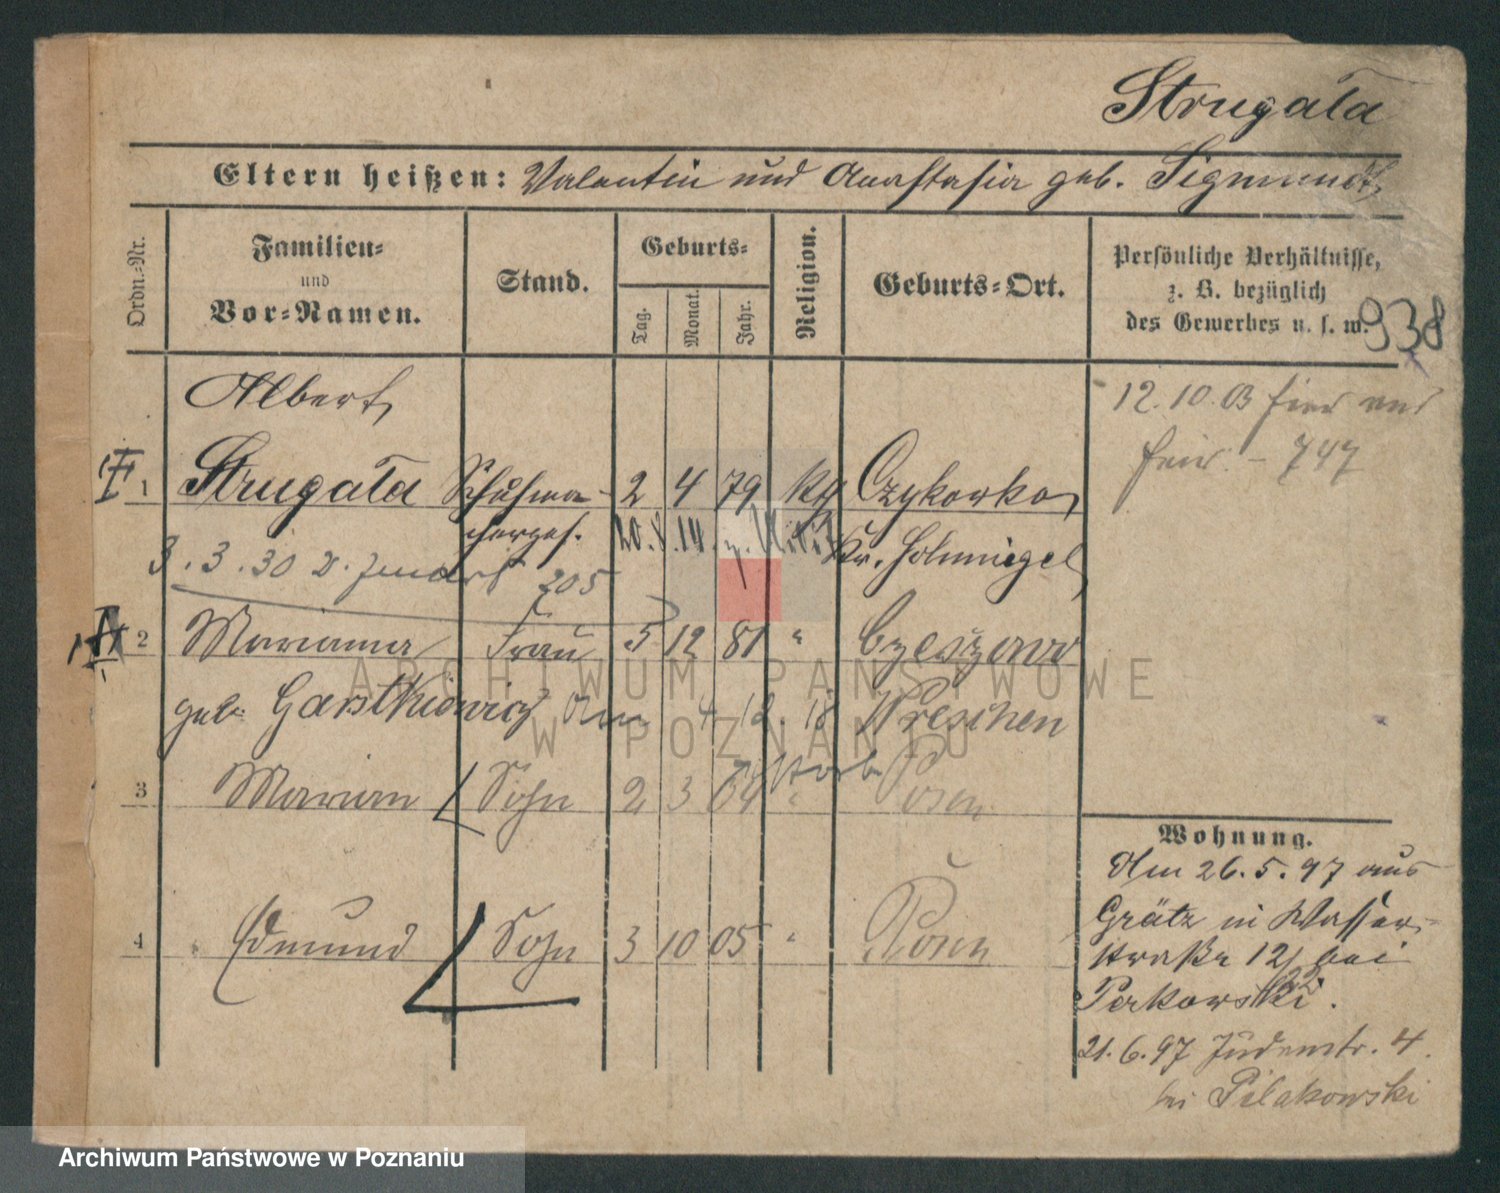 Strugała
Eltern heißen: Valentin und Anastasia geb. Sigmund
Ordn.-Nr.
Familien-
und
Vor-Namen.
Stand.
Geburts-
Tag.
Monat.
Jahr.
Religion.
Geburts-Ort.
Persönliche Verhältnisse,
z. B. bezüglich
des Gewerbes u. s. w.
938
Albert
12.10.03
747
1 Strugała Schuhma- 2 4 79 kth Czykowko
cherges. 20.8.14. z. Militär Kr. Schmiegel
3.3.30 205
2 Marianna Frau 5 12 81 " Czeszewo
geb. Garstkiewicz 4 12. 18 Wreschen
storb.
3 Marian Sohn 2 3 04 " Posen
4 Edmund Sohn 3 10 05 " Posen
Wohnung.
Am 26.5.97 aus
Grätz in Wasser-
straße 12 bei
Perkowski.
21.6.97 Judenstr. 4.
bei Pilakowski
ARCHIWUM PAŃSTWOWE
W POZNANIU
Archiwum Państwowe w Poznaniu